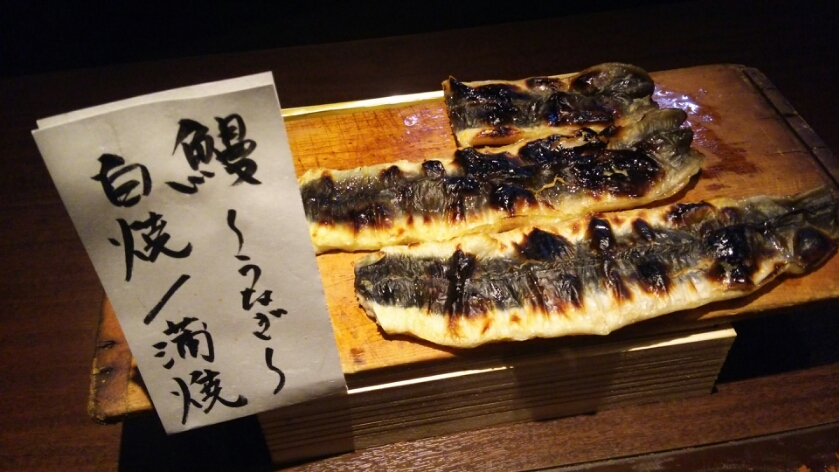 鰻 〜うなぎ〜
白焼/蒲焼